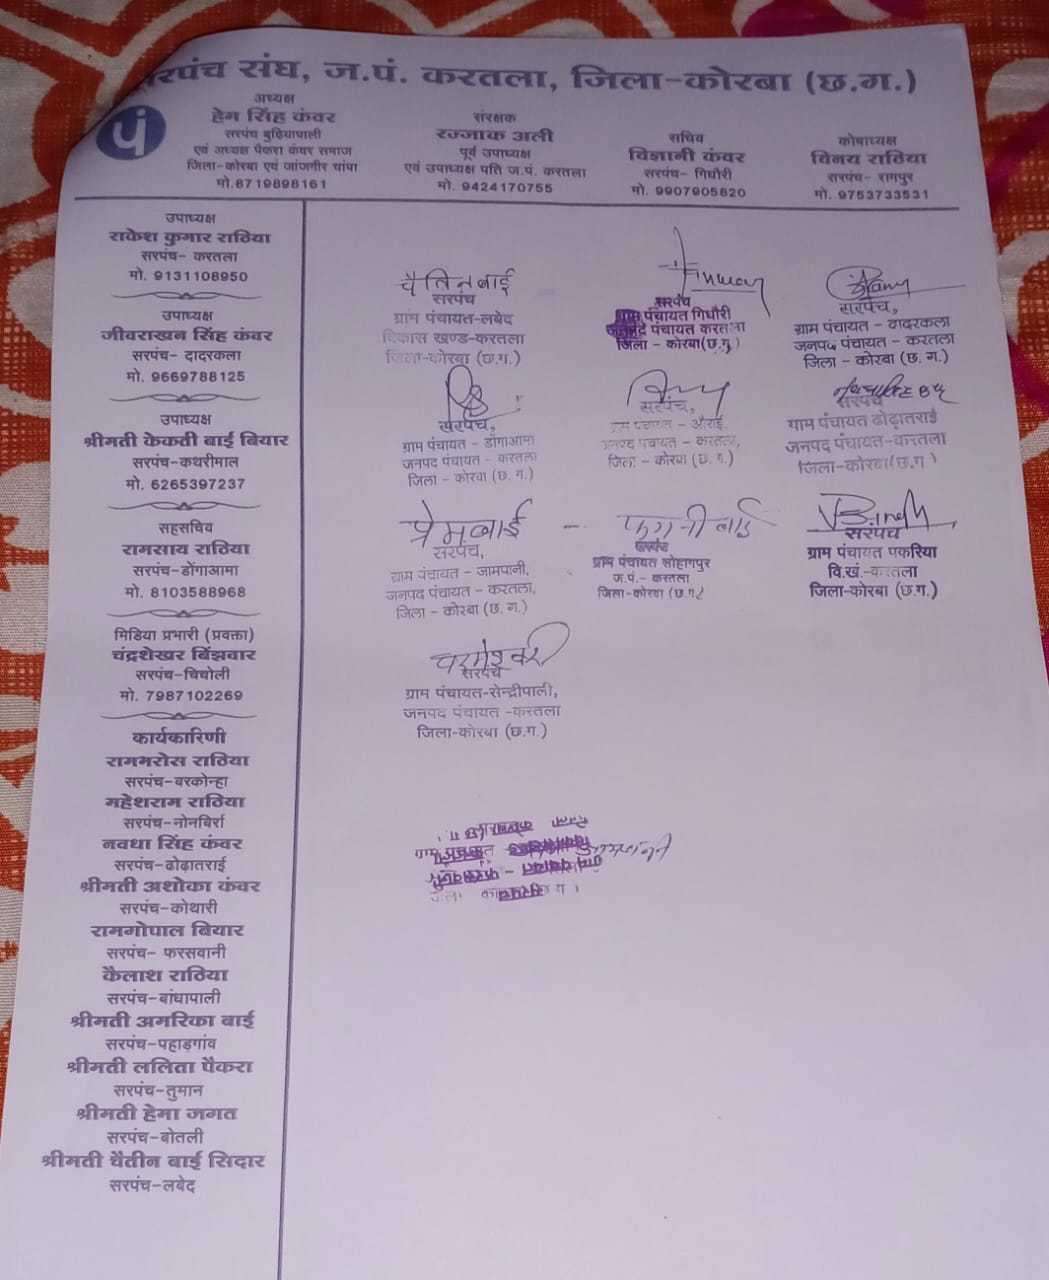 सरपंच संघ, ज.पं. करतला, जिला-कोरबा (छ.ग.)
पं
अध्यक्ष
हेम सिंह कंवर
सरपंच बुढ़ियापाली
एवं अध्यक्ष पैकरा कंवर समाज
जिला-कोरबा एवं जांजगीर चांपा
मो.8719898161
संरक्षक
रज्जाक अली
पूर्व उपाध्यक्ष
एवं उपाध्यक्ष पति ज.पं. करतला
मो. 9424170755
सचिव
विज्ञानी कंवर
सरपंच- गिधौरी
मो. 9907905820
कोषाध्यक्ष
विनय राठिया
सरपंच- रामपुर
मो. 9753733531
उपाध्यक्ष
राकेश कुमार राठिया
सरपंच- करतला
मो. 9131108950
उपाध्यक्ष
जीवराखन सिंह कंवर
सरपंच- दादरकला
मो. 9669788125
उपाध्यक्ष
श्रीमती केकती बाई बियार
सरपंच-कथरीमाल
मो. 6265397237
सहसचिव
रामसाय राठिया
सरपंच-डोंगाआमा
मो. 8103588968
मिडिया प्रभारी (प्रवक्ता)
चंद्रशेखर बिंझवार
सरपंच-चिचोली
मो. 7987102269
कार्यकारिणी
रामभरोस राठिया
सरपंच-बरकोन्हा
महेशराम राठिया
सरपंच-नोनबिर्रा
नवधा सिंह कंवर
सरपंच-ढोढ़ातराई
श्रीमती अशोका कंवर
सरपंच-कोथारी
रामगोपाल बियार
सरपंच- फरसवानी
कैलाश राठिया
सरपंच-बांधापाली
श्रीमती अमरिका बाई
सरपंच-पहाड़गांव
श्रीमती ललिता पैकरा
सरपंच-तुमान
श्रीमती हेमा जगत
सरपंच-बोतली
श्रीमती चैतीन बाई सिदार
सरपंच-लबेद
चैतिनबाई
सरपंच
ग्राम पंचायत-लबेद
विकास खण्ड-करतला
जिला-कोरबा (छ.ग.)
सरपंच
ग्राम पंचायत गिधौरी
जनपद पंचायत करतला
जिला - कोरबा(छ.ग.)
सरपंच,
ग्राम पंचायत - दादरकला
जनपद पंचायत - करतला
जिला - कोरबा (छ. ग.)
सरपंच,
ग्राम पंचायत - डोंगाआमा
जनपद पंचायत - करतला
जिला - कोरबा (छ. ग.)
सरपंच,
ग्राम पंचायत - औराई
जनपद पंचायत - करतला,
जिला - कोरबा (छ. ग.)
सरपंच
ग्राम पंचायत ढोढ़ातराई
जनपद पंचायत-करतला
जिला-कोरबा(छ.ग)
प्रेमबाई
सरपंच,
ग्राम पंचायत - जामपानी,
जनपद पंचायत - करतला,
जिला - कोरबा (छ.ग.)
सरपंच
ग्राम पंचायत सोहागपुर
ज.पं.- करतला
जिला-कोरबा (छ.ग.)
सरपंच
ग्राम पंचायत पकरिया
वि.खं.-करतला
जिला-कोरबा (छ.ग.)
सरपंच
ग्राम पंचायत-सेन्द्रीपाली,
जनपद पंचायत -करतला
जिला-कोरबा (छ.ग.)